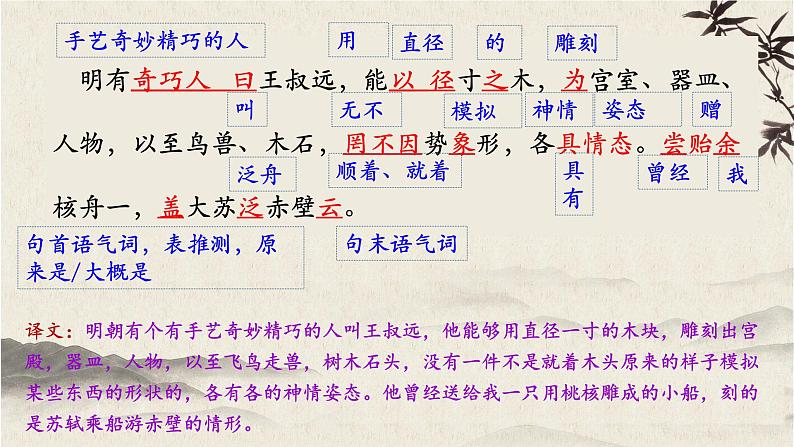 手艺奇妙精巧的人 用 直径 的 雕刻
明有奇巧人 曰王叔远，能以 径寸之木，为宫室、器皿、
叫 无不 模拟 神情 姿态 赠
人物，以至鸟兽、木石，罔不因势象形，各具情态。尝贻余
泛舟 顺着、就着 具有 曾经 我
核舟一，盖大苏泛赤壁云。
句首语气词，表推测，原 句末语气词
来是/大概是
译文：明朝有个有手艺奇妙精巧的人叫王叔远，他能够用直径一寸的木块，雕刻出宫
殿，器皿，人物，以至飞鸟走兽，树木石头，没有一件不是就着木头原来的样子模拟
某些东西的形状的，各有各的神情姿态。他曾经送给我一只用桃核雕成的小船，刻的
是苏轼乘船游赤壁的情形。